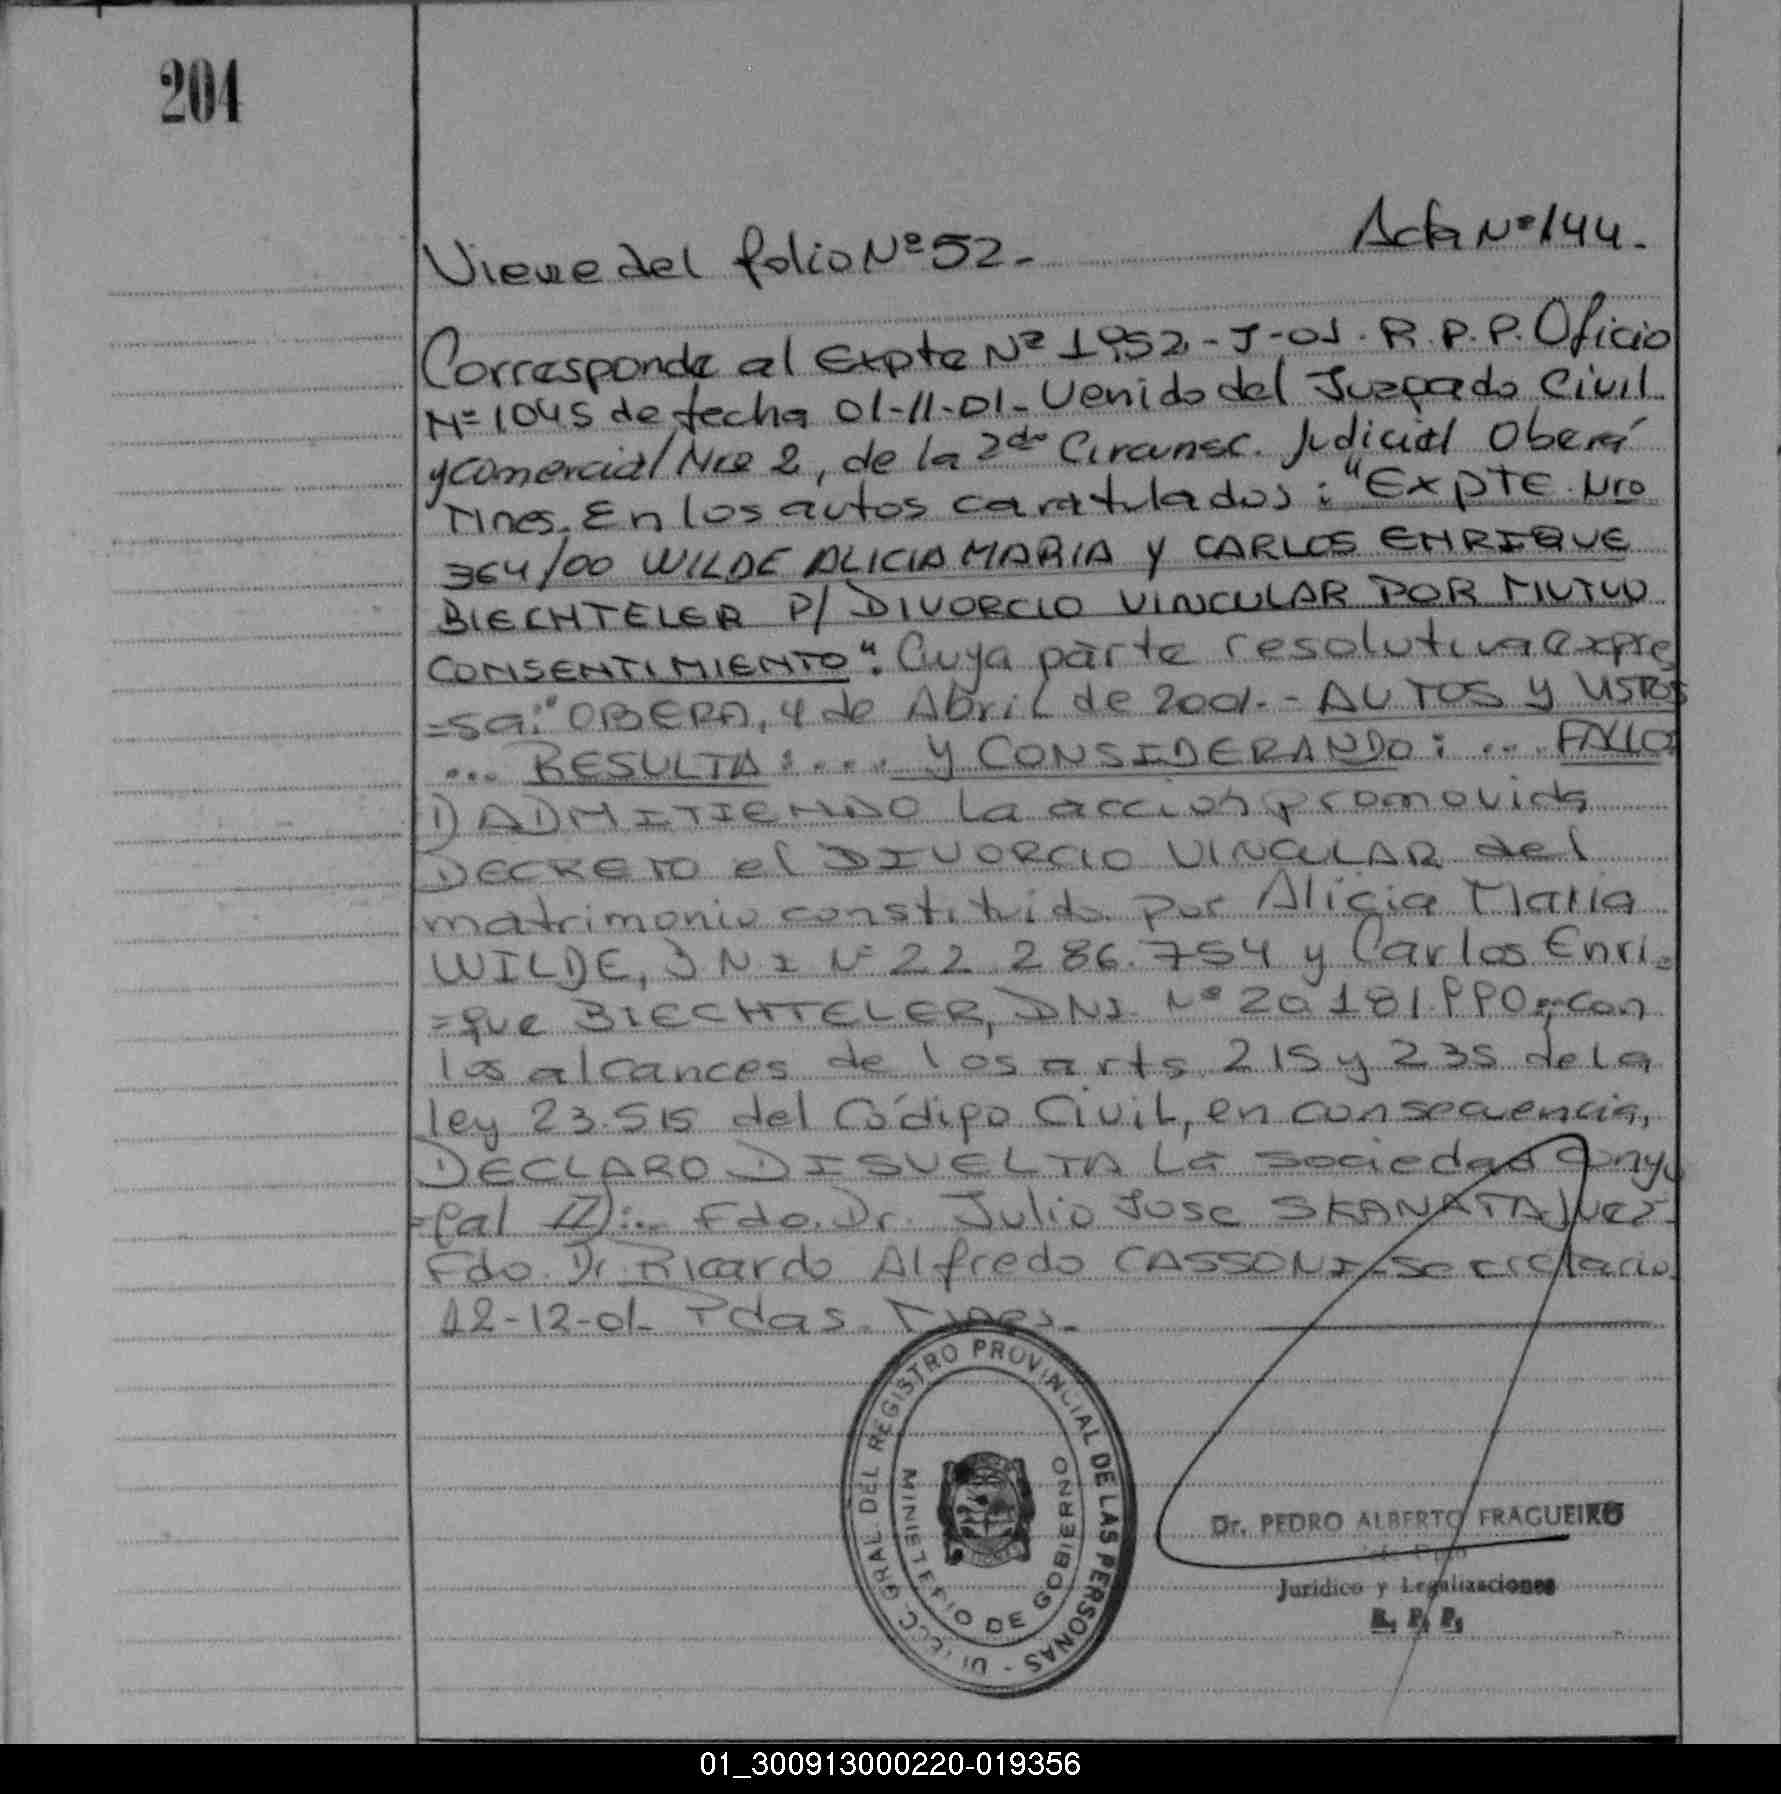 204
Acta Nº 144.
Viene del folio Nº 52.-
Corresponde al Expte Nº 1952-J-01. R.P.P. Oficio
Nº 1045 de fecha 01-11-01- Venido del Juzgado Civil
y Comercial Nro 2, de la 2da Circunsc. Judicial Oberá
Mnes. En los autos caratulados: "EXPTE Nro
364/00 WILDE ALICIA MARIA Y CARLOS ENRIQUE
BIECHTELER P/ DIVORCIO VINCULAR POR MUTUO
CONSENTIMIENTO". Cuya parte resolutiva expre
=sa: "OBERA, 4 de Abril de 2001.- AUTOS Y VISTOS
... RESULTA: .... Y CONSIDERANDO: ... FALLO:
I) ADMITIENDO la acción promovida
DECRETO el DIVORCIO VINCULAR del
matrimonio constituido por Alicia Maria
WILDE, DNI Nº 22.286.754 y Carlos Enri=
=que BIECHTELER, DNI. Nº con
los alcances de los arts 215 y 235 de la
ley 23.515 del Código Civil, en consecuencia,
DECLARO DISUELTA la sociedad conyu
=gal II):.. Fdo. Dr. Julio Jose SKANATA Juez-
Fdo. Dr Ricardo Alfredo CASSONI-Secretario.
12-12-01- Pdas. Mnes.-
DIRECC. GRAL DEL REGISTRO PROVINCIAL DE LAS PERSONAS -
MINISTERIO DE GOBIERNO
Dr. PEDRO ALBERTO FRAGUEIRO
Jurídico y Legalizaciones
R. P. P.
01_300913000220-019356